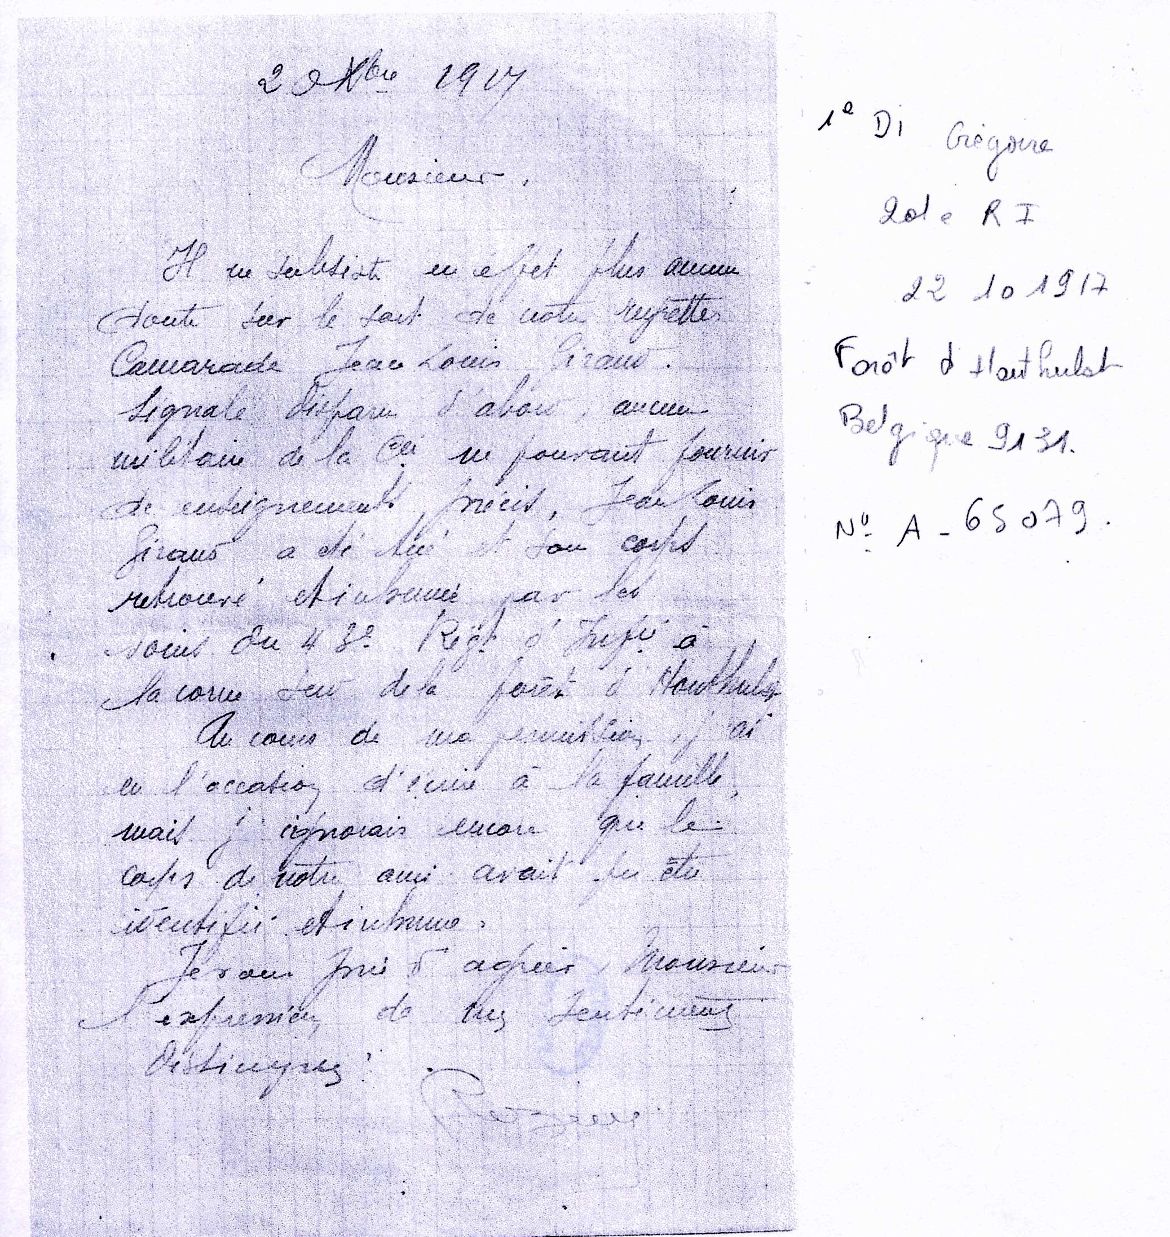 2 Xbre 1917
Monsieur,
Il ne subsiste en effet plus aucun
doute sur le sort de notre regretté
Camarade Jean Louis Giraud.
Signalé disparu d'abord aucun
militaire de la Cie ne pouvant fournir
de enseignements précis, Jean Louis
Giraud a été tué et son corps
retrouvé et inhumé par les
soins du 43e Regt d'Infie à
la corne sud de la forêt d'Houthulst
Au cours de ma permission j'ai
eu l'occasion d'écrire à la famille,
mais j'ignorais encore que le
corps de notre ami avait pu être
identifié et inhumé.
Je vous prie d'agréer Monsieur
l'expression de mes sentiments
distingués.
1e Di Grégoire
201e R I
22 10 1917
Forêt d Houthulst
Belgique 9131.
No A - 65079.